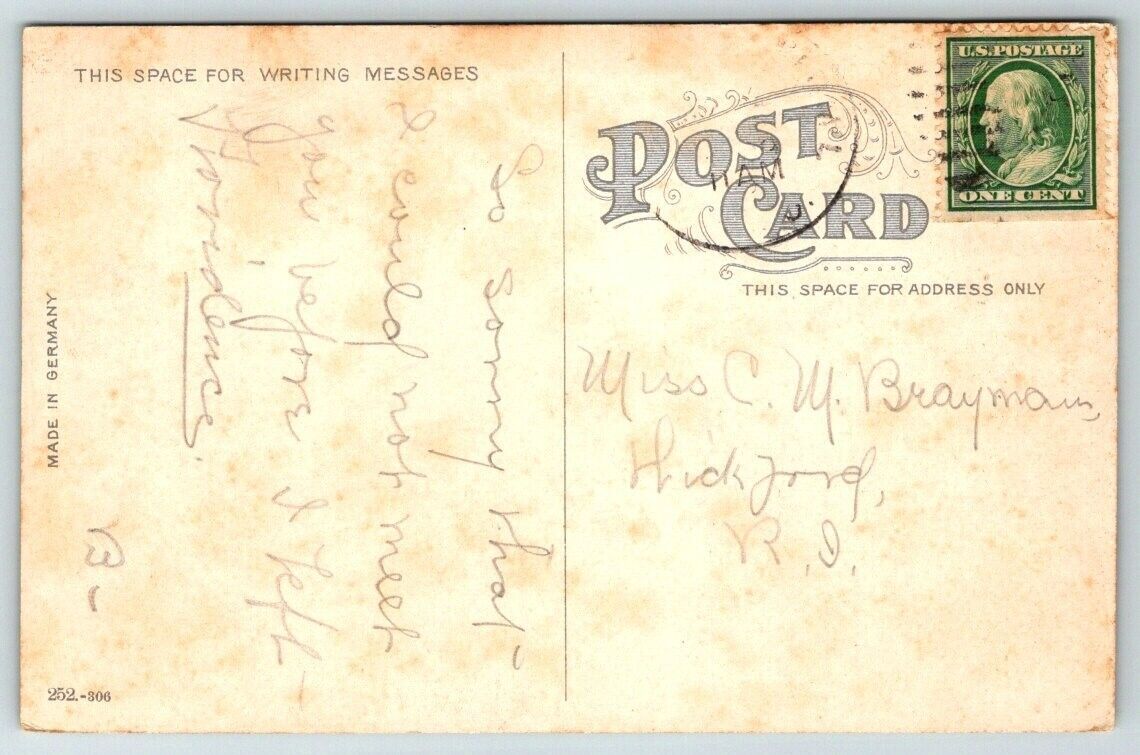 THIS SPACE FOR WRITING MESSAGES
So sorry that
I could not meet
you before I left
Providence.
B-
MADE IN GERMANY
252.-306
POST CARD
THIS SPACE FOR ADDRESS ONLY
U.S. POSTAGE
ONE CENT
11 AM
Miss C. M. Brayman,
Wickford,
R. I.